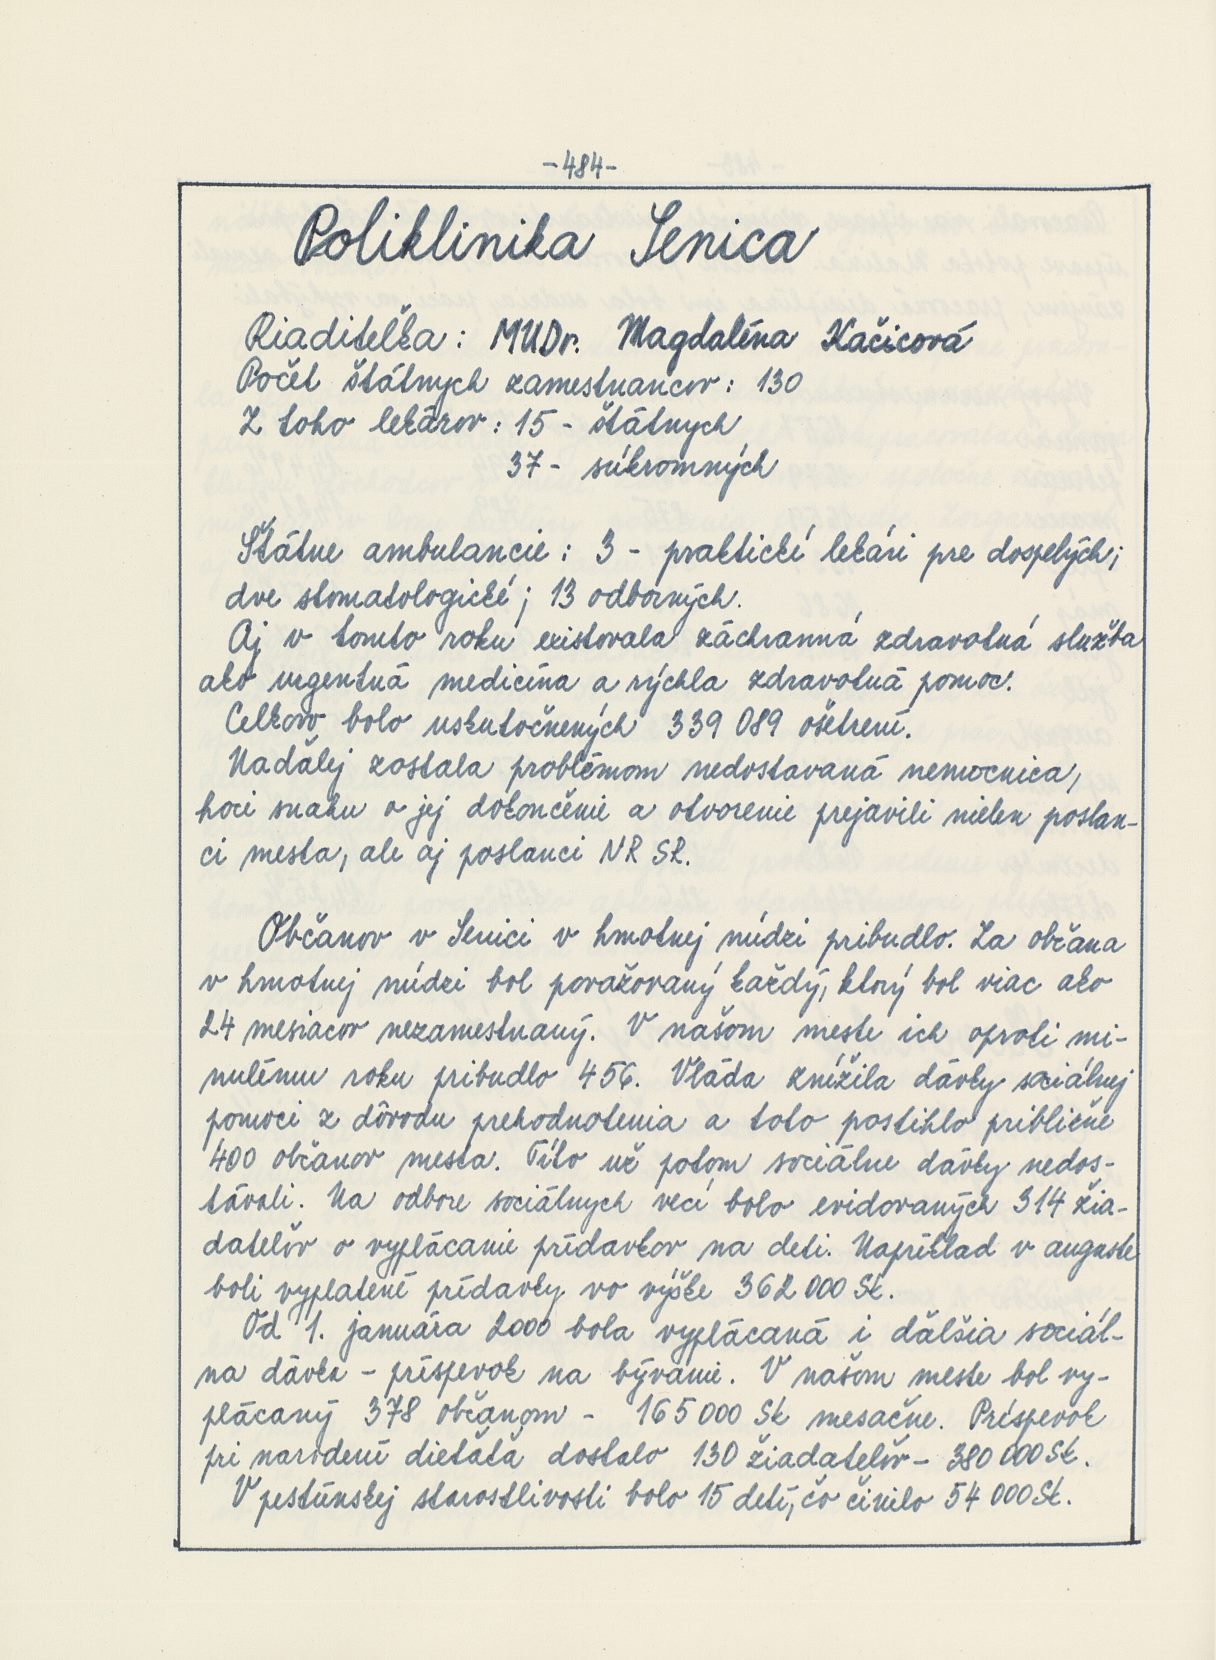 -484-
Poliklinika Senica
Riaditeľka: MUDr. Magdaléna Kačicová
Počet štátnych zamestnancov: 130
Z toho lekárov: 15 - štátnych
37 - súkromných
Štátne ambulancie: 3 - praktickí lekári pre dospelých;
dve stomatologické; 13 odborných.
Aj v tomto roku existovala záchranná zdravotná služba
ako urgentná medicína a rýchla zdravotná pomoc.
Celkov bolo uskutočnených 339 089 ošetrení.
Naďalej zostala problémom nedostavaná nemocnica,
hoci snahu o jej dokončenie a otvorenie prejavili nielen poslan-
ci mesta, ale aj poslanci NR SR.
Občanov v Senici v hmotnej núdzi pribudlo. Za občana
v hmotnej núdzi bol považovaný každý, ktorý bol viac ako
24 mesiacov nezamestnaný. V našom meste ich oproti mi-
nulému roku pribudlo 456. Vláda znížila dávky sociálnej
pomoci z dôvodu prehodnotenia a toto postihlo približne
400 občanov mesta. Títo už potom sociálne dávky nedos-
távali. Na odbore sociálnych vecí bolo evidovaných 314 žia-
dateľov o vyplácanie prídavkov na deti. Napríklad v auguste
boli vyplatené prídavky vo výške 362 000 Sk.
Od 1. januára 2000 bola vyplácaná i ďalšia sociál-
na dávka - príspevok na bývanie. V našom meste bol vy-
plácaný 378 občanom - 165 000 Sk mesačne. Príspevok
pri narodení dieťaťa dostalo 130 žiadateľov - 380 000 Sk.
V pestúnskej starostlivosti bolo 15 detí, čo činilo 54 000 Sk.